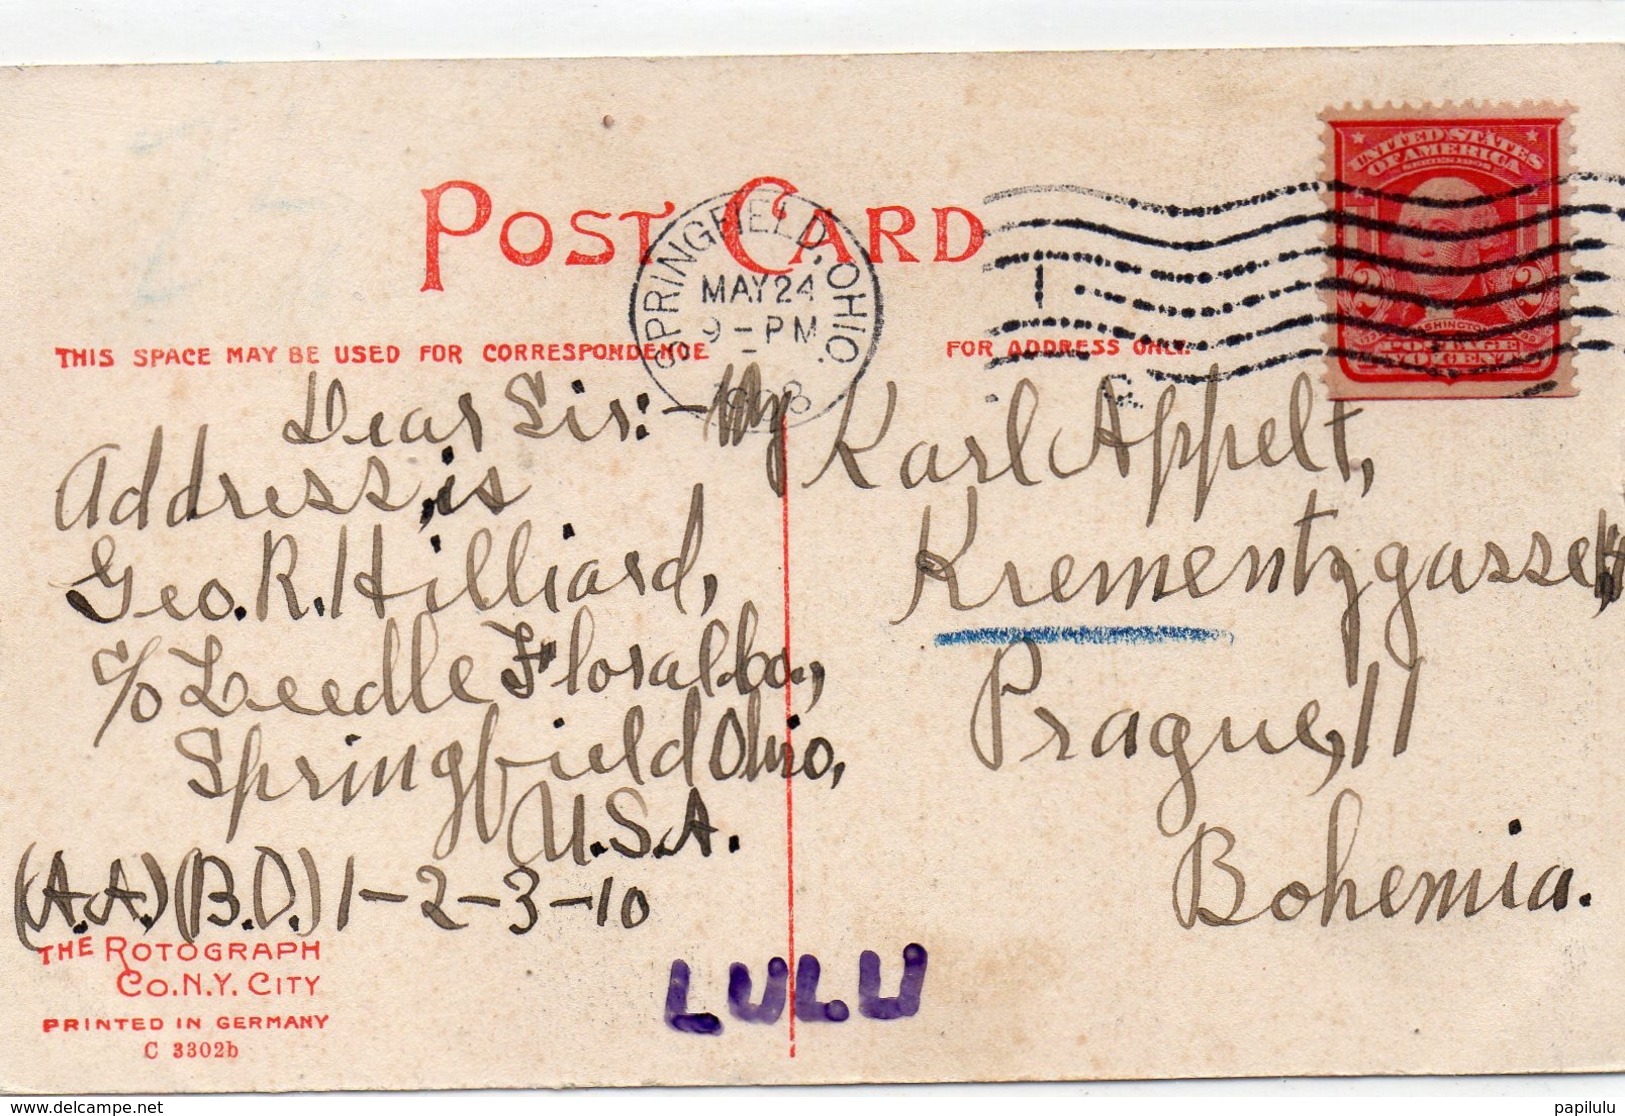 POST CARD
SPRINGFIELD, OHIO.
MAY 24
9-PM
1908
1
UNITED STATES
OF AMERICA
2 2
WASHINGTON
POSTAGE
TWO CENTS
THIS SPACE MAY BE USED FOR CORRESPONDENCE
FOR ADDRESS ONLY.
Dear Sir:- My
Address, is
Geo. R. Hilliard,
c/o Leedle Floral Co.,
Springfield Ohio,
U.S.A.
(A.A.) (B.D.) 1-2-3-10
Karl Appelt,
Krementzgasse
Prague, 11
Bohemia.
THE ROTOGRAPH
CO. N.Y. CITY
PRINTED IN GERMANY
C 3302b
LULU
www.delcampe.net
papilulu